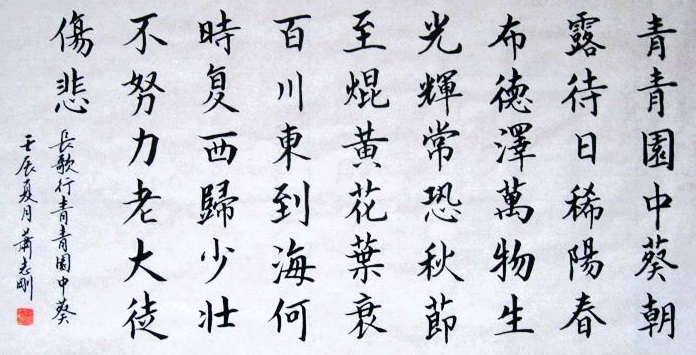 青青園中葵朝
露待日稀陽春
布德澤萬物生
光輝常恐秋節
至焜黃花葉衰
百川東到海何
時复西歸少壮
不努力老大徒
傷悲
長歌行青青園中葵
壬辰夏月蕭志剛